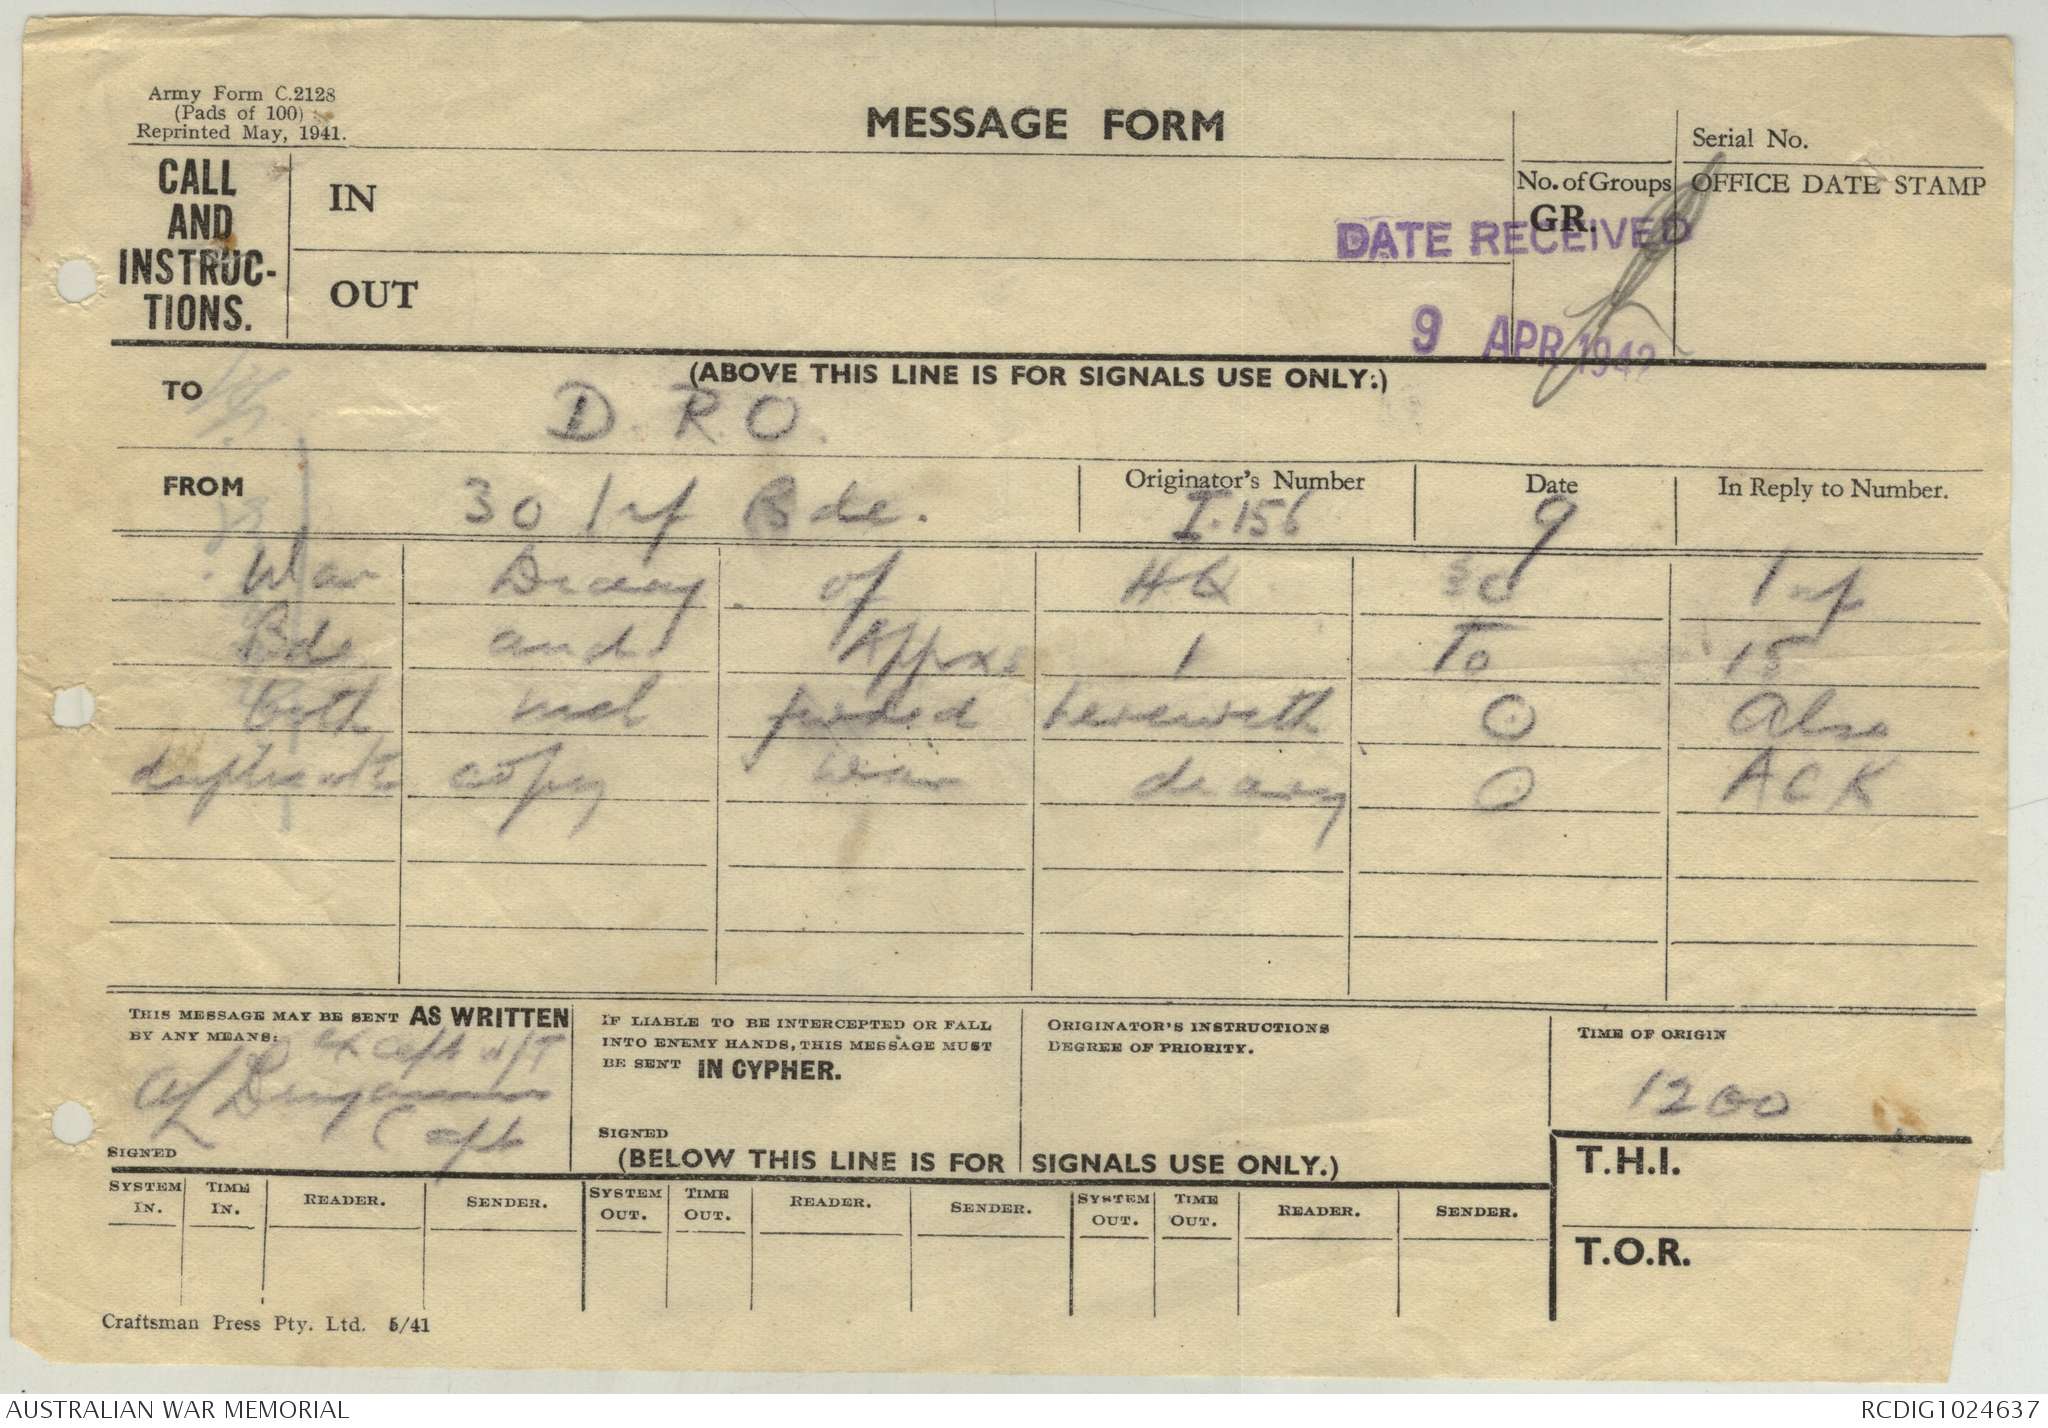 Army Form C.2128
(Pads of 100)
Reprinted May, 1941.
MESSAGE FORM
Serial No.
CALL AND INSTRUC-TIONS.
IN
No. of Groups
GR.
OFFICE DATE STAMP
DATE RECEIVED
OUT
9 APR 1942
(ABOVE THIS LINE IS FOR SIGNALS USE ONLY.)
TO D.R.O.
FROM 30 Inf Bde.
Originator's Number
I.156
Date
9
In Reply to Number.
War Diary of HQ 30 Inf
Bde and Appxs 1 To 15
both incl fwded herewith O Also
duplicate copy war diary O ACK
THIS MESSAGE MAY BE SENT AS WRITTEN
BY ANY MEANS:
except w/T
Capt
SIGNED
IF LIABLE TO BE INTERCEPTED OR FALL
INTO ENEMY HANDS, THIS MESSAGE MUST
BE SENT IN CYPHER.
SIGNED
ORIGINATOR'S INSTRUCTIONS
DEGREE OF PRIORITY.
TIME OF ORIGIN
1200
(BELOW THIS LINE IS FOR SIGNALS USE ONLY.)
T.H.I.
SYSTEM IN. TIME IN. READER. SENDER. SYSTEM OUT. TIME OUT. READER. SENDER. SYSTEM OUT. TIME OUT. READER. SENDER.
T.O.R.
Craftsman Press Pty. Ltd. 5/41
AUSTRALIAN WAR MEMORIAL
RCDIG1024637